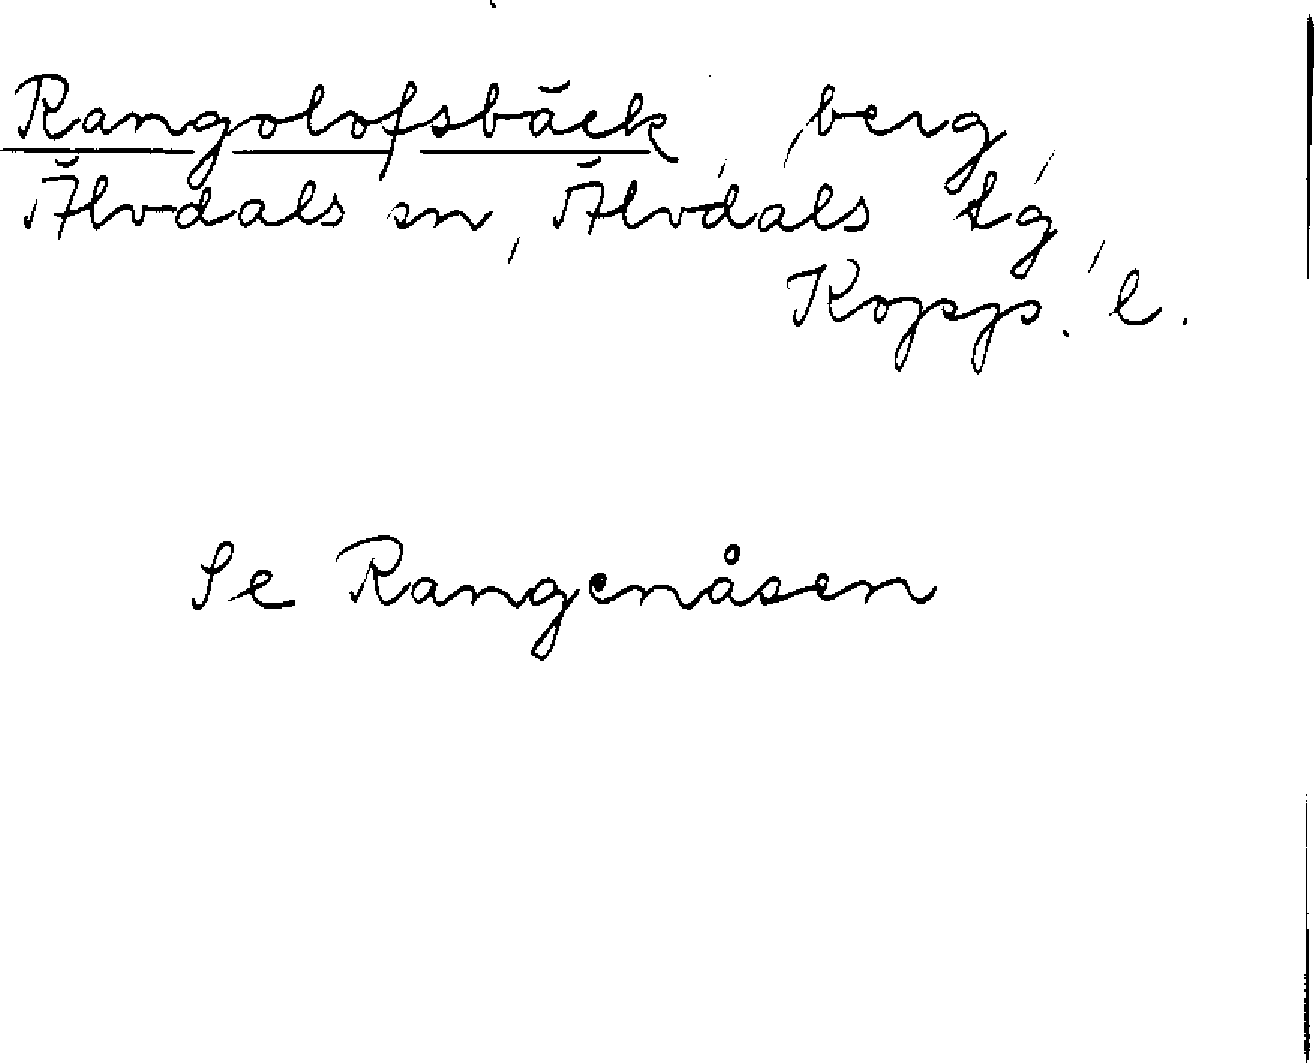 Rangolofsbäck, berg,
Älvdals sn, Älvdals tg,
Kopps. l.
Se Rangenåsen